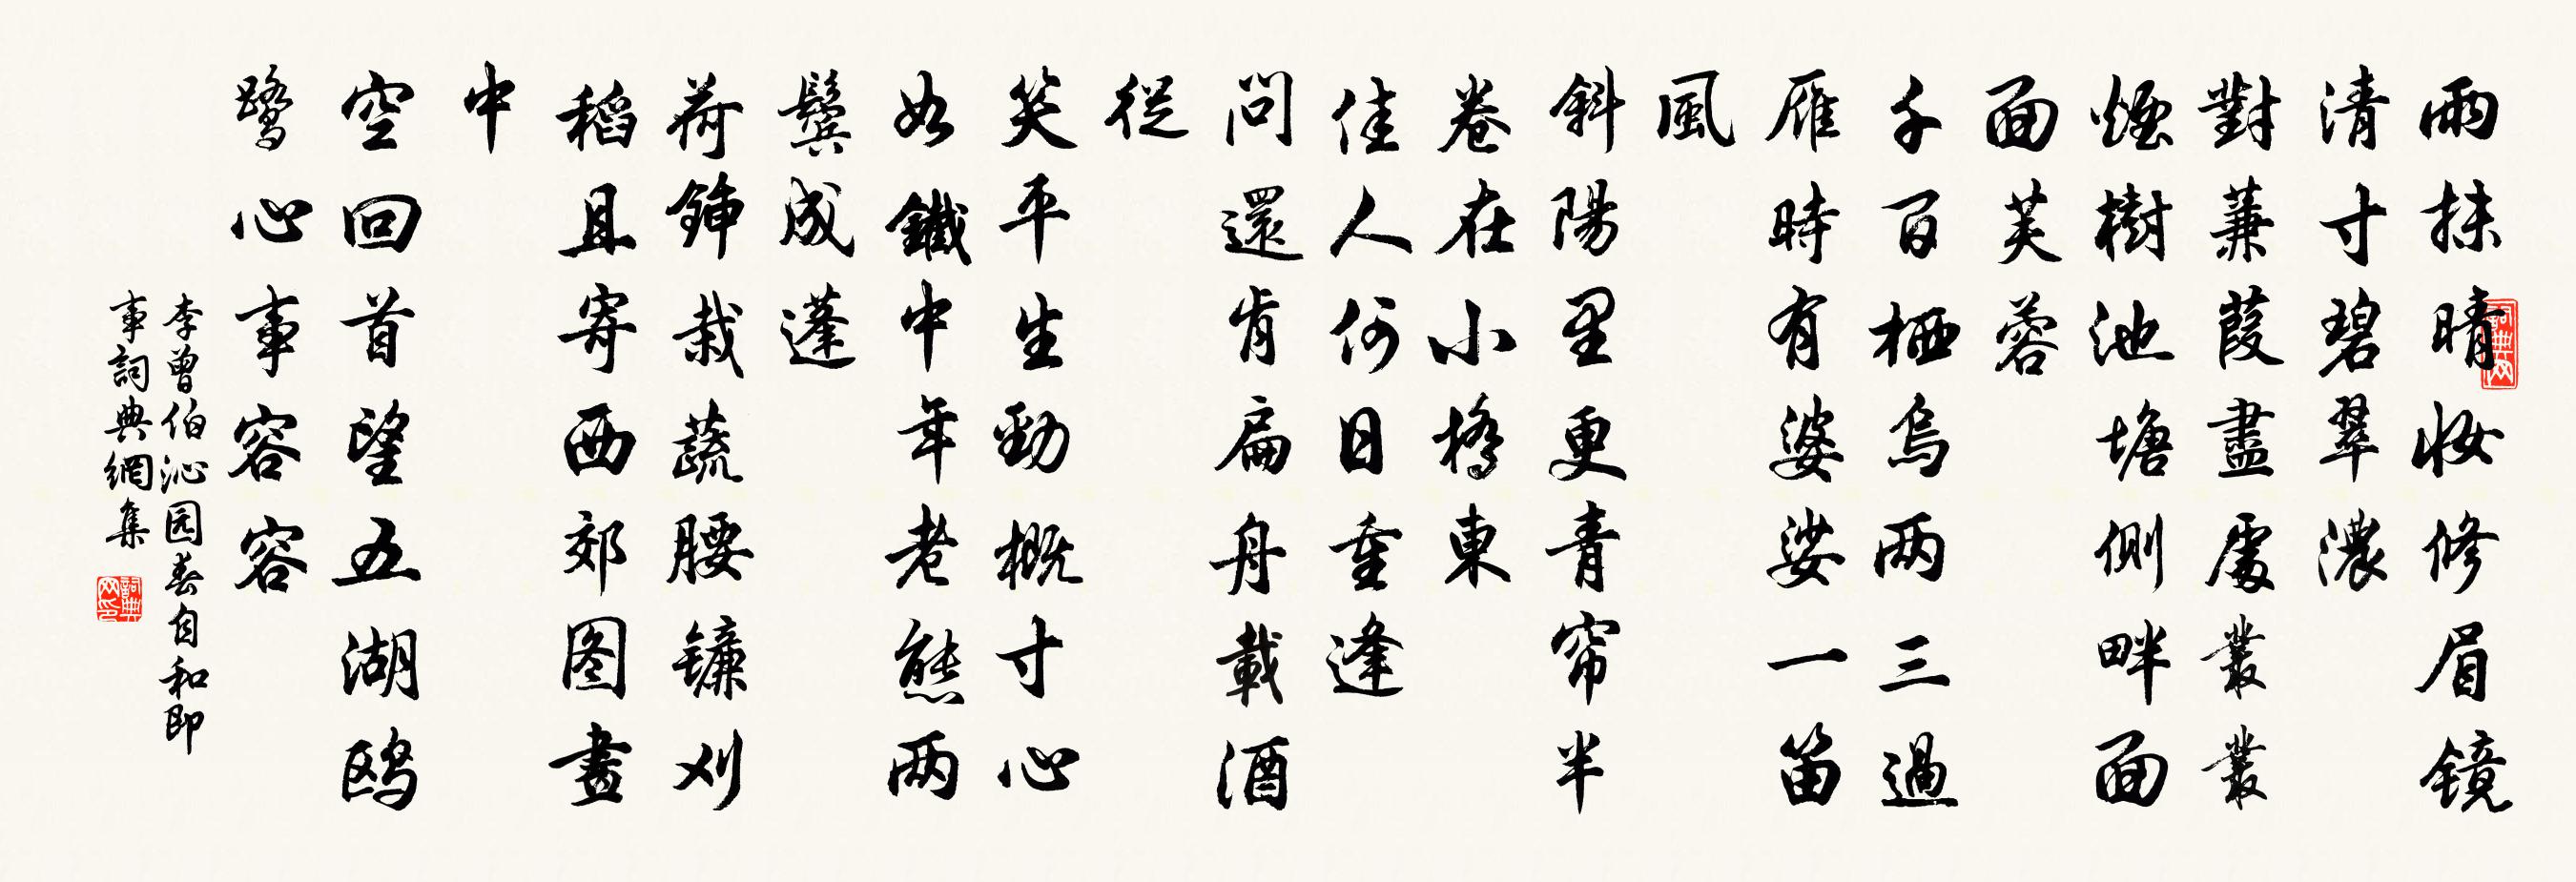 雨抹晴妆修眉镜
清寸碧翠濃
對蒹葭盡處叢叢
煙樹池塘側畔面
面芙蓉
千百栖烏两三過
雁時有婆娑一笛
風
斜陽里更青帘半
卷在小橋東
佳人何日重逢
問還肯扁舟載酒
從
笑平生勁概寸心
如鐵中年老態两
鬓成蓬
荷鍤栽蔬腰镰刈
稻且寄西郊图畫
中
空回首望五湖鸥
鹭心事容容
李曾伯沁园春自和即
事詞典網集
詞典网
詞典网印